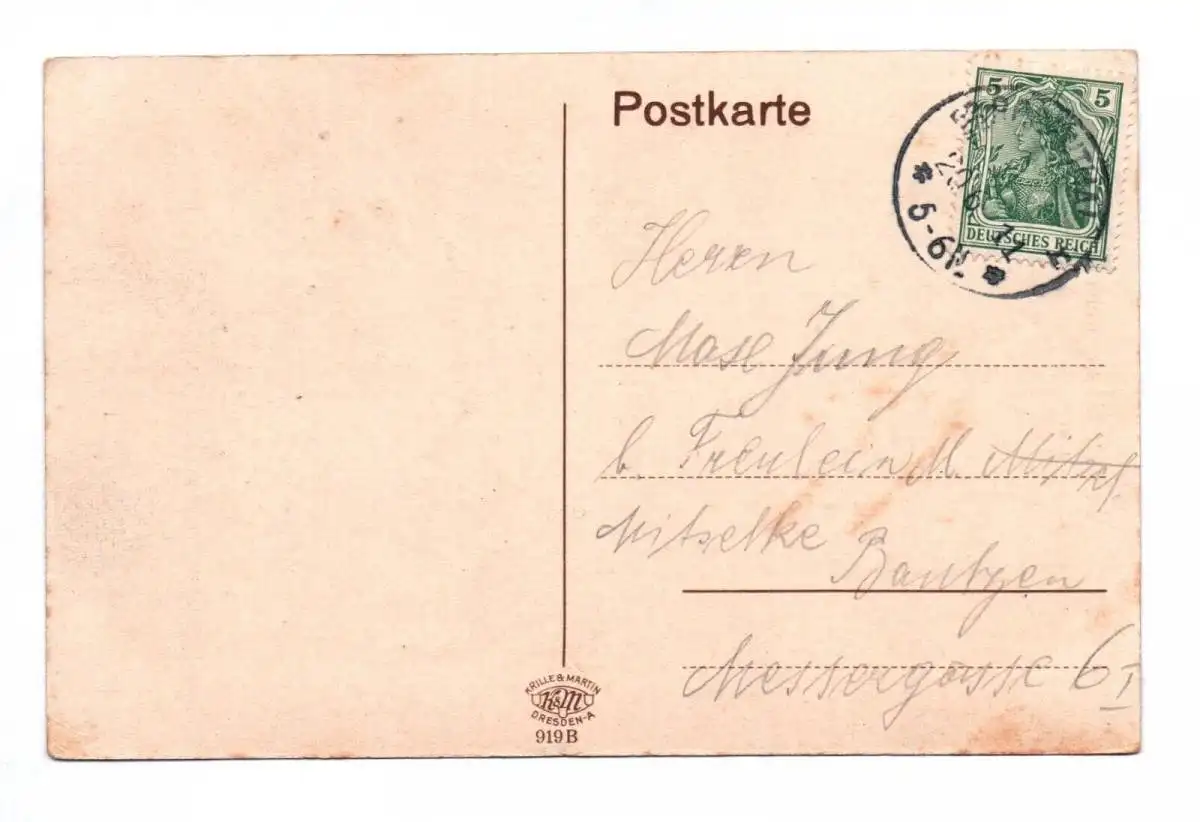 Postkarte
5 5
DEUTSCHES REICH
5-6N.
Herrn
Max Jung
b. Fräulein M.
Mitzelke Bautzen
Messergasse 6 I
KRILLE & MARTIN
K&M
DRESDEN-A
919 B